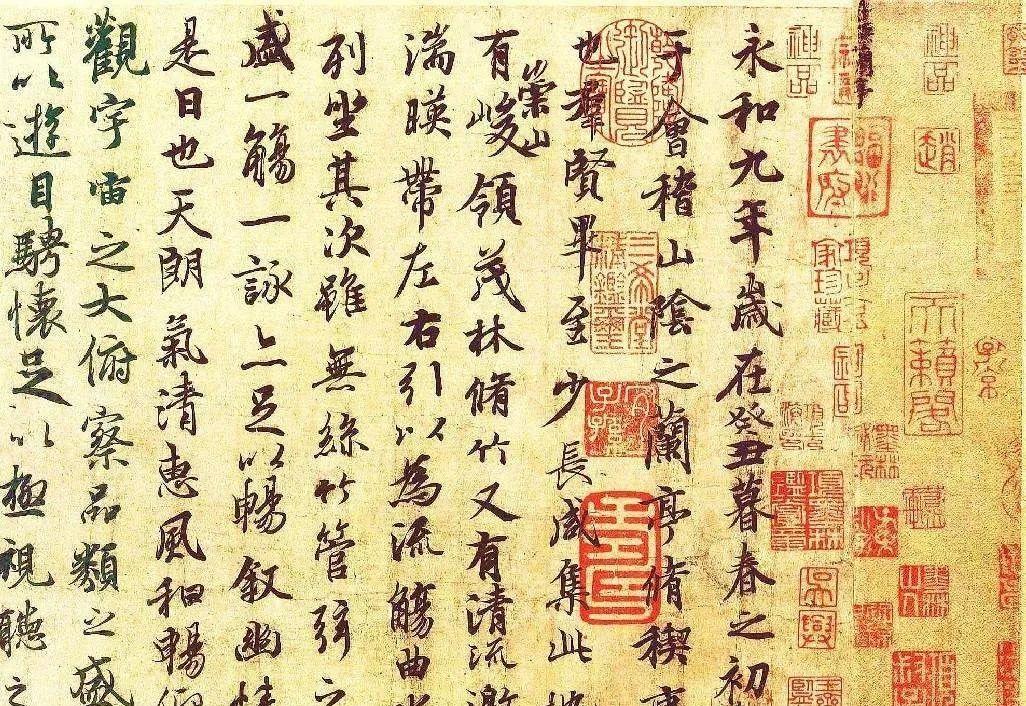 天籟閣
神品
趙
神品
書府
吳興
永和九年歲在癸丑暮春之初
于會稽山陰之蘭亭脩稧事
也群賢畢至少長咸集此地
三希堂精鑑璽
宜子孫
有崇山峻領茂林脩竹又有清流激
湍暎帶左右引以為流觴曲水
列坐其次雖無絲竹管弦之
盛一觴一詠亦足以暢敘幽情
是日也天朗氣清惠風和暢仰
觀宇宙之大俯察品類之盛
所以遊目騁懷足以極視聽之